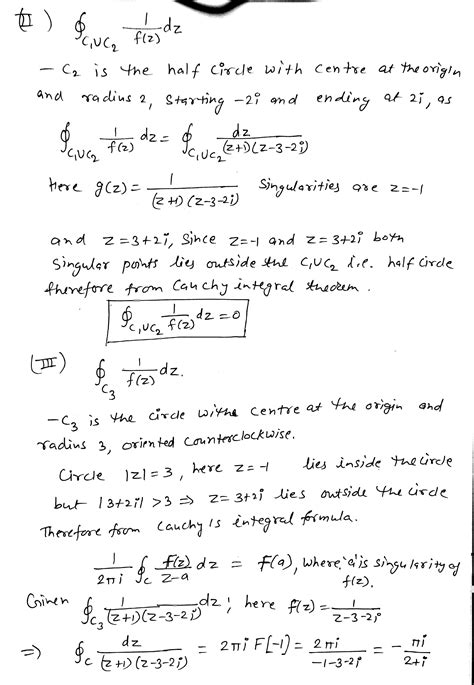 (II) ∮_{C₁∪C₂} 1/f(z) dz
– C₂ is the half circle with centre at the origin
and radius 2, starting -2i and ending at 2i, as
∮_{C₁∪C₂} 1/f(z) dz = ∮_{C₁∪C₂} dz/((z+1)(z-3-2i))
Here g(z) = 1/((z+1)(z-3-2i)) Singularities are z=-1
and z=3+2i, Since z=-1 and z=3+2i both
Singular points lies outside the C₁∪C₂ i.e. half circle
therefore from Cauchy integral theorem.
∮_{C₁∪C₂} 1/f(z) dz = 0
(III) ∮_{C₃} 1/f(z) dz.
– C₃ is the circle withe centre at the origin and
radius 3, oriented counterclockwise.
Circle |z|=3, here z=-1 lies inside the circle
but |3+2i| >3 ⇒ z=3+2i lies outside the circle
Therefore from Cauchy's integral formula.
1/(2πi) ∮_C F(z)/(z-a) dz = F(a), where, 'a' is singularity of
f(z).
Given ∮_{C₃} 1/((z+1)(z-3-2i)) dz; here f(z) = 1/(z-3-2i)
⇒ ∮_C dz/((z+1)(z-3-2i)) = 2πi F[-1] = 2πi/(-1-3-2i) = -πi/(2+i)